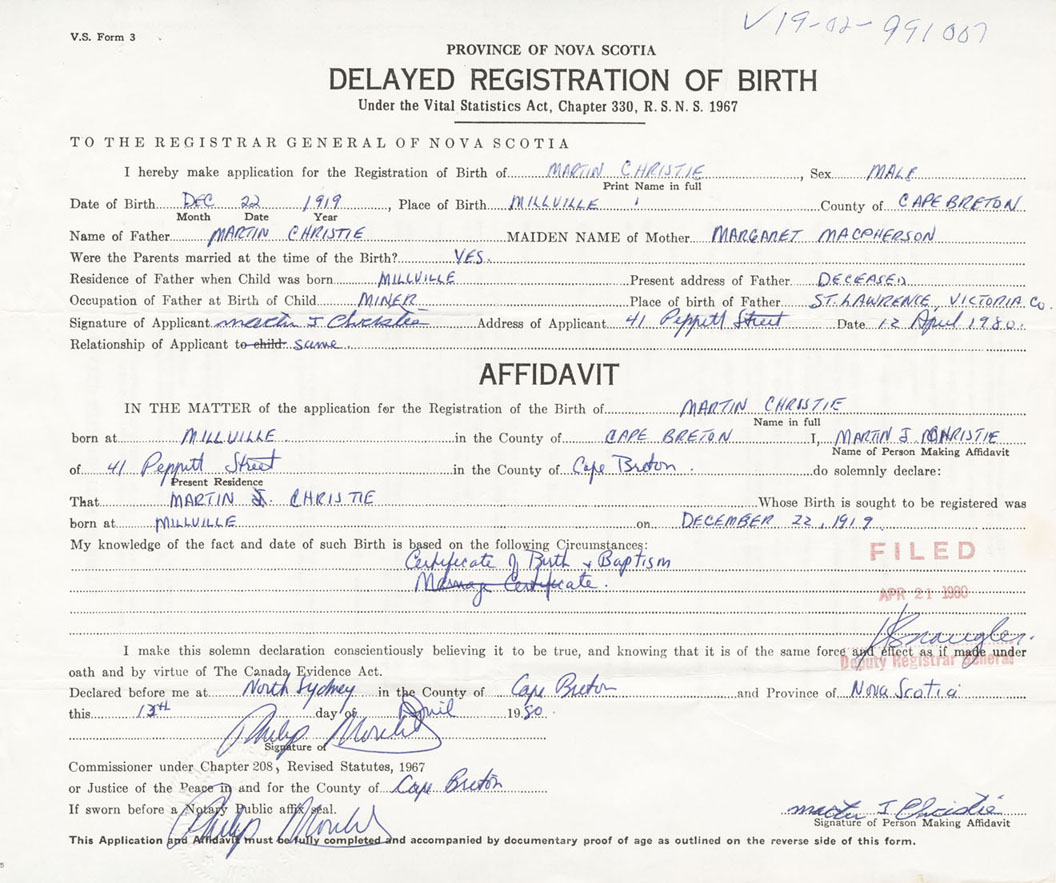 V.S. Form 3
V 19-02-991007
PROVINCE OF NOVA SCOTIA
DELAYED REGISTRATION OF BIRTH
Under the Vital Statistics Act, Chapter 330, R. S. N. S. 1967
TO THE REGISTRAR GENERAL OF NOVA SCOTIA
I hereby make application for the Registration of Birth of MARTIN CHRISTIE, Sex MALE
Print Name in full
Date of Birth DEC 22 1919, Place of Birth MILLVILLE County of CAPE BRETON
Month Date Year
Name of Father MARTIN CHRISTIE MAIDEN NAME of Mother MARGARET MACPHERSON
Were the Parents married at the time of the Birth? YES.
Residence of Father when Child was born MILLVILLE Present address of Father DECEASED
Occupation of Father at Birth of Child MINER Place of birth of Father ST. LAWRENCE, VICTORIA CO.
Signature of Applicant Martin J Christie Address of Applicant 41 Peppitt Street Date 12 April 1980.
Relationship of Applicant to child same
AFFIDAVIT
IN THE MATTER of the application for the Registration of the Birth of MARTIN CHRISTIE
Name in full
born at MILLVILLE in the County of CAPE BRETON I, MARTIN J CHRISTIE
Name of Person Making Affidavit
of 41 Peppitt Street in the County of Cape Breton. do solemnly declare:
Present Residence
That MARTIN J. CHRISTIE Whose Birth is sought to be registered was
born at MILLVILLE on DECEMBER 22, 1919.
My knowledge of the fact and date of such Birth is based on the following Circumstances:
Certificate of Birth + Baptism
Marriage Certificate.
FILED
APR 21 1980
I make this solemn declaration conscientiously believing it to be true, and knowing that it is of the same force and effect as if made under
Deputy Registrar General
oath and by virtue of The Canada Evidence Act.
Declared before me at North Sydney in the County of Cape Breton and Province of Nova Scotia
this 13th day of April 1980.
Philip
Signature of
Commissioner under Chapter 208, Revised Statutes, 1967
or Justice of the Peace in and for the County of Cape Breton
If sworn before a Notary Public affix seal.
Philip
Martin J Christie
Signature of Person Making Affidavit
This Application and Affidavit must be fully completed and accompanied by documentary proof of age as outlined on the reverse side of this form.